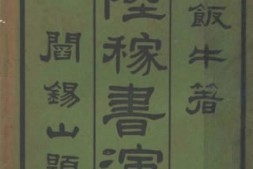 飯牛箸
陸稼書演
閻錫山題